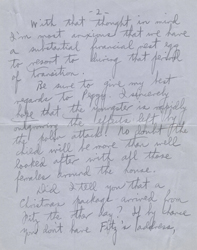 - 2 -
With that thought in mind
I'm most anxious that we have
a substantial financial nest egg
to resort to during that period
of transition.
Be sure to give my best
regards to Peggy. I sincerely
hope that the youngster is happily
outgrowing the effects left by
the attack. No doubt the
child will be more than well
looked after with all those
females around the house.
Did I tell you that a
Christmas package arrived from
Fitz the other day? If by chance
you don't have Fitz's address,